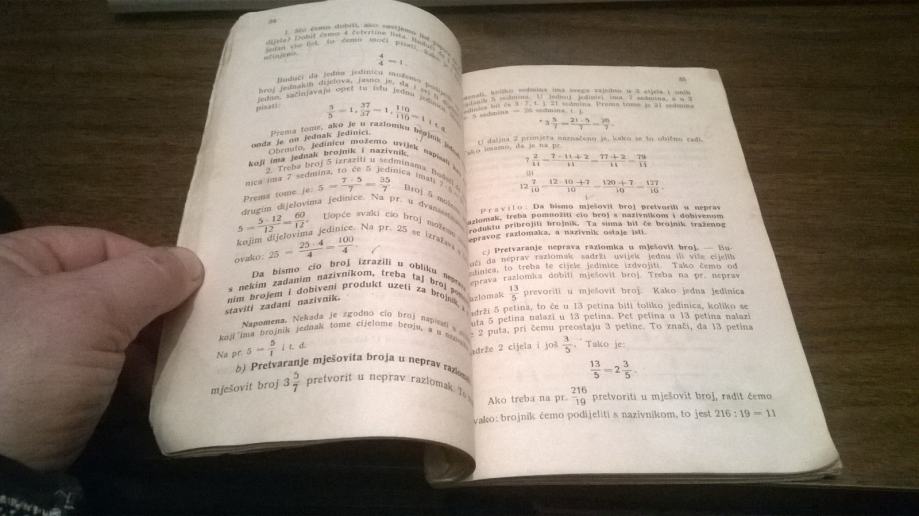 1. Što ćemo dobiti, ako savijemo list
dijela? Dobit ćemo 4 četvrtine lista. Budući da
jedan cio list, to ćemo moći pisati,
učinjeno.
4/4 = 1.
Budući da jednu jedinicu možemo
broj jednakih dijelova, jasno je, da i svi ti
jedno, sačinjavaju opet tu istu jednu
pisati:
5/5 = 1, 37/37 = 1, 110/110 = 1 i t. d.
Prema tome, ako je u razlomku brojnik
onda je on jednak jedinici.
Obrnuto, jedinicu možemo uvijek napisati
koji ima jednak brojnik i nazivnik.
2. Treba broj 5 izraziti u sedminama. Budući
nica ima 7 sedmina, to će 5 jedinica imati 7
Prema tome je: 5 = 7 · 5/7 = 35/7. Broj 5 možemo
drugim dijelovima jedinice. Na pr. u dvanaestinama
5 = 5 · 12/12 = 60/12. Uopće svaki cio broj možemo
kojim dijelovima jedinice. Na pr. 25 se izražava
ovako: 25 = 25 · 4/4 = 100/4.
Da bismo cio broj izrazili u obliku neprava
s nekim zadanim nazivnikom, treba taj broj
nim brojem i dobiveni produkt uzeti za brojnik, a
staviti zadani nazivnik.
Napomena. Nekada je zgodno cio broj napisati u
koji ima brojnik jednak tome cijelome broju, a u
Na pr. 5 = 5/1 i t. d.
b) Pretvaranje mješovita broja u neprav razlomak.
mješovit broj 3 5/7 pretvorit u neprav razlomak. To
35
koliko sedmina ima svega zajedno u 3 cijela i onih
zadanih 5 sedmina. U jednoj jedinici ima 7 sedmina, a u 3
jedinice bit će 3 · 7, t. j. 21 sedmina. Prema tome je 21 sedmina
+ 5 sedmina = 26 sedmina, t. j.
3 5/7 = 21 + 5/7 = 26/7.
U daljna 2 primjera naznačeno je, kako se to obično radi.
Tako imamo, da je na pr.
7 2/11 = 7 · 11 + 2/11 = 77 + 2/11 = 79/11
ili
12 7/10 = 12 · 10 + 7/10 = 120 + 7/10 = 127/10.
Pravilo: Da bismo mješovit broj pretvorili u neprav
razlomak, treba pomnožiti cio broj s nazivnikom i dobivenom
produktu pribrojiti brojnik. Ta suma bit će brojnik traženog
nepravog razlomaka, a nazivnik ostaje isti.
c) Pretvaranje neprava razlomka u mješovit broj. — Bu-
dući da neprav razlomak sadrži uvijek jednu ili više cijelih
jedinica, to treba te cijele jedinice izdvojiti. Tako ćemo od
neprava razlomka dobiti mješovit broj. Treba na pr. neprav
razlomak 13/5 prevoriti u mješovit broj. Kako jedna jedinica
sadrži 5 petina, to će u 13 petina biti toliko jedinica, koliko se
puta 5 petina nalazi u 13 petina. Pet petina u 13 petina nalazi
se 2 puta, pri čemu preostaju 3 petine. To znači, da 13 petina
sadrže 2 cijela i još 3/5. Tako je:
13/5 = 2 3/5.
Ako treba na pr. 216/19 pretvoriti u mješovit broj, radit ćemo
ovako: brojnik ćemo podijeliti s nazivnikom, to jest 216 : 19 = 11